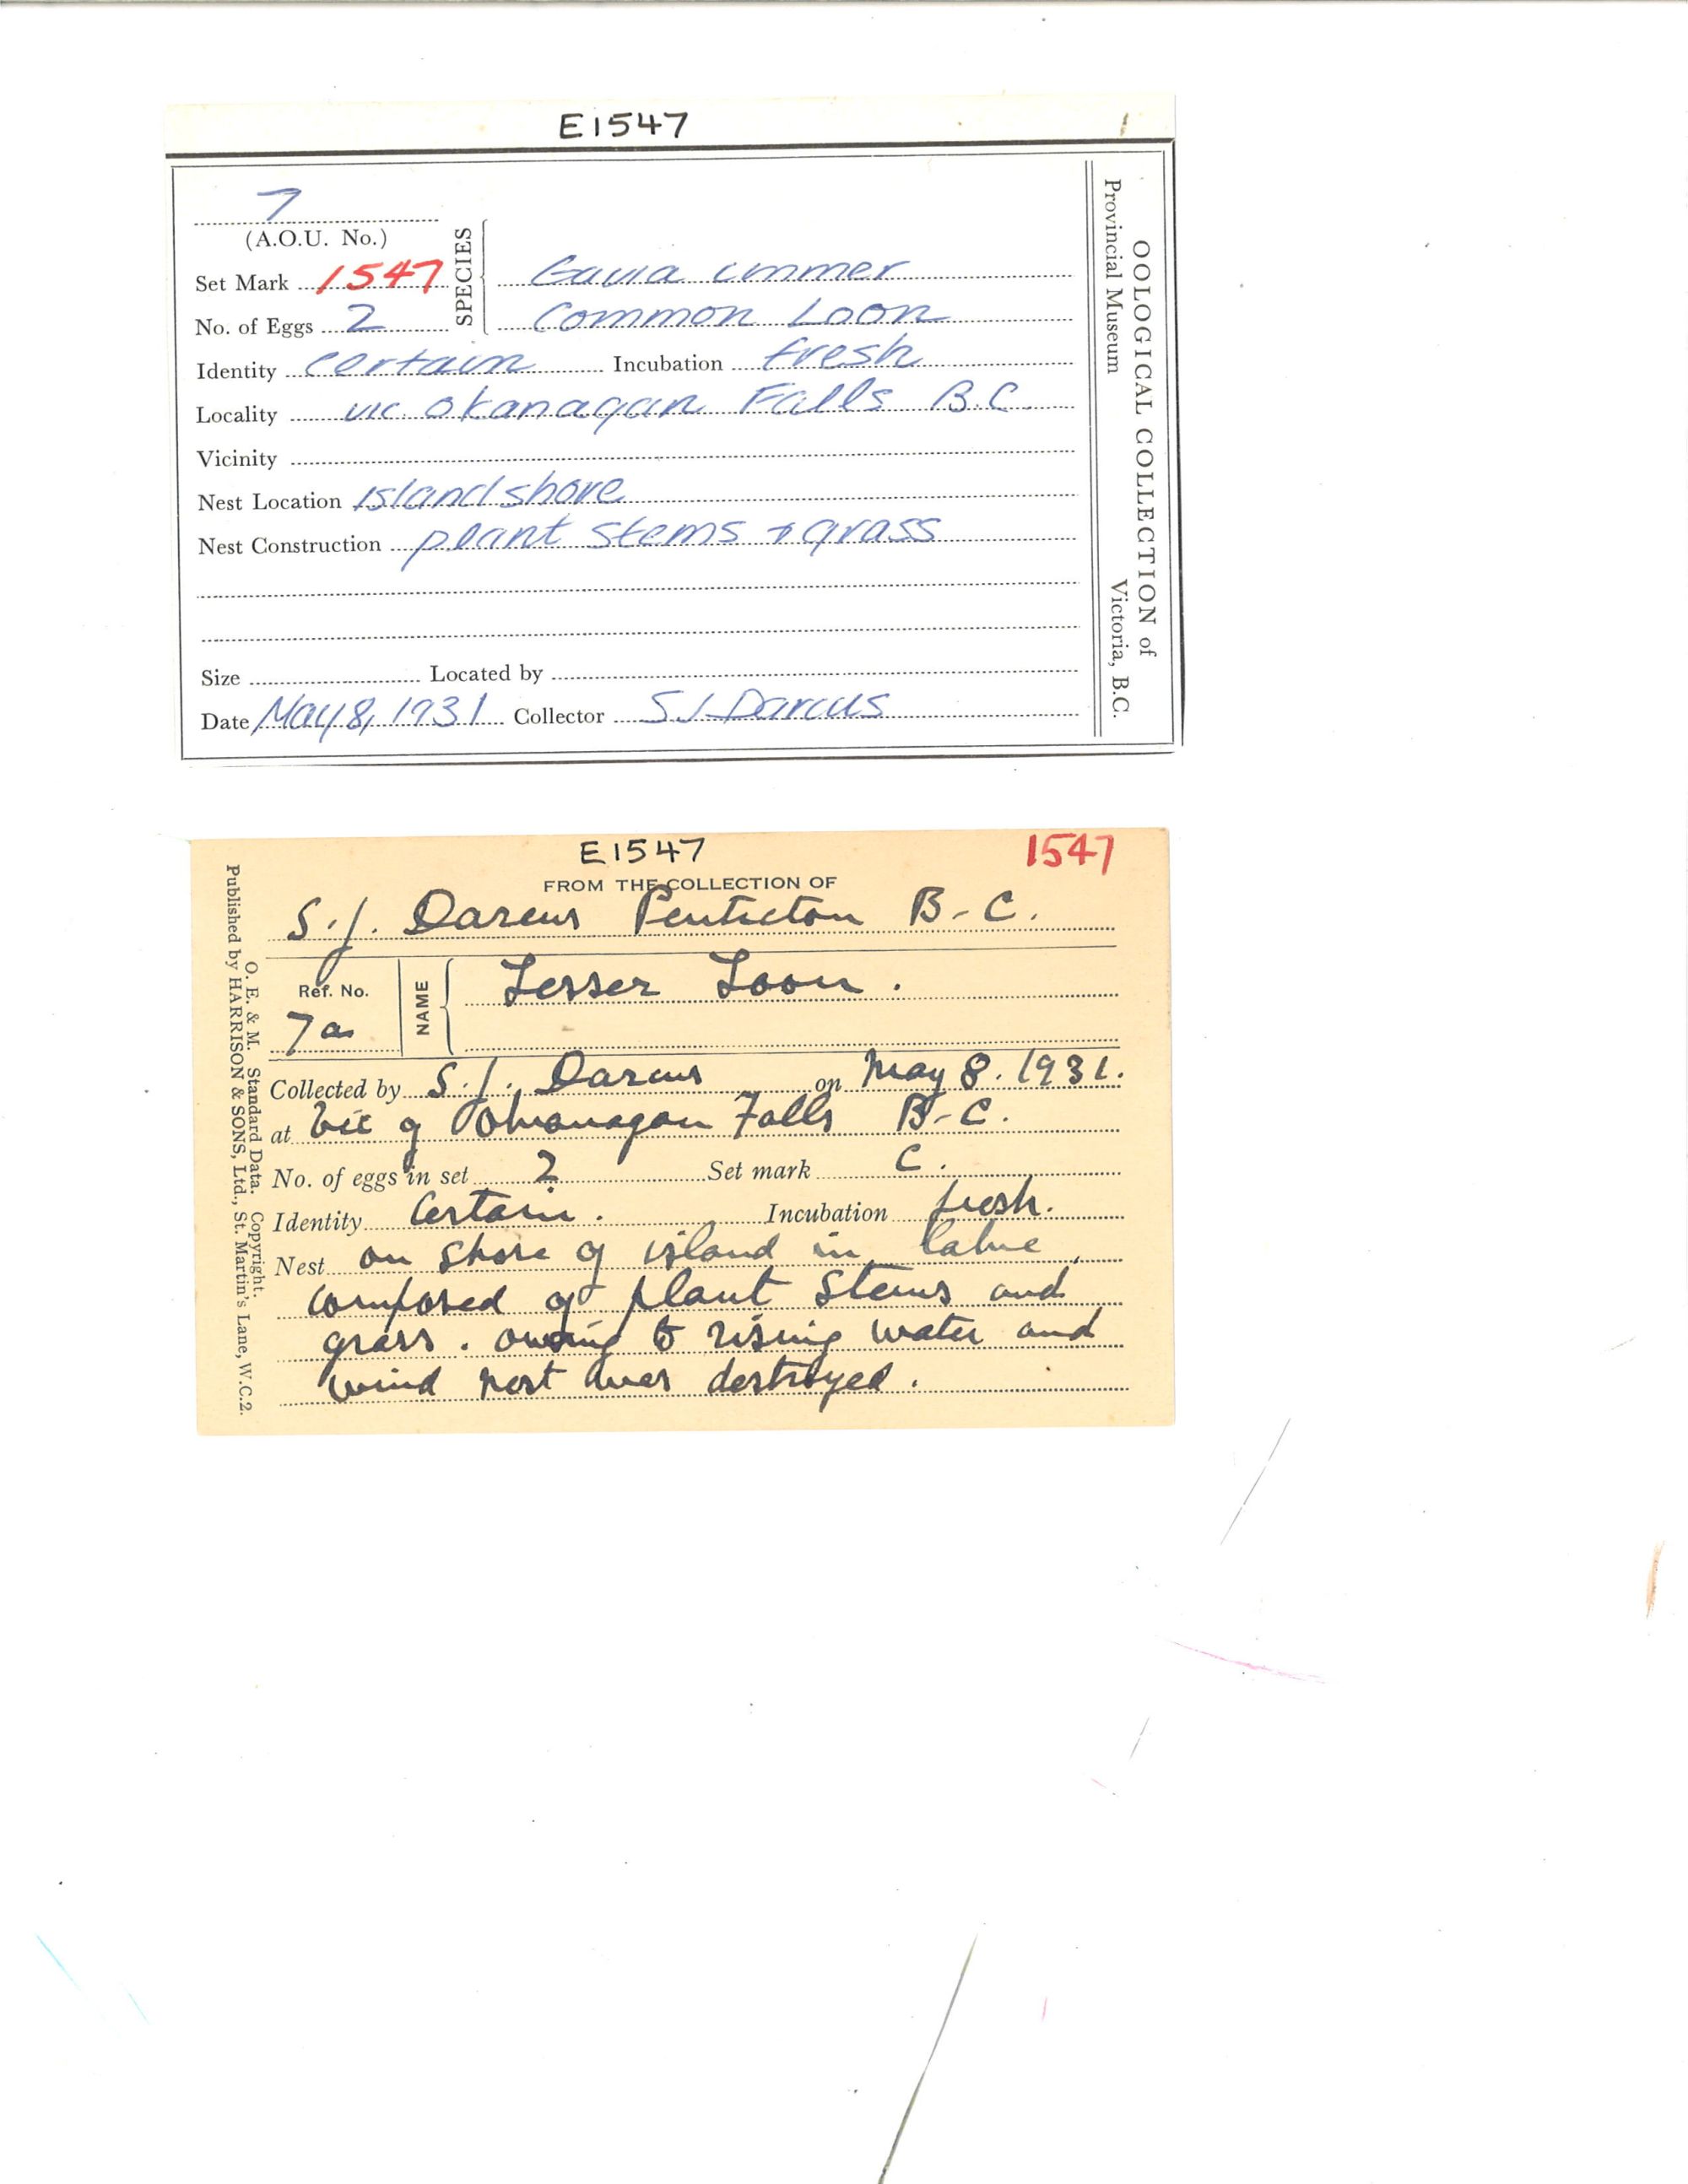 E1547
7
(A.O.U. No.)
SPECIES
Set Mark 1547 Gavia immer
No. of Eggs 2 Common Loon
Identity certain Incubation fresh
Locality vic. Okanagan Falls B.C.
Vicinity
Nest Location Island shore
Nest Construction plant stems + grass
Size Located by
Date May 8, 1931 Collector S J Darcus
OOLOGICAL COLLECTION of
Provincial Museum Victoria, B.C.
E1547 1547
FROM THE COLLECTION OF
S.J. Darcus Penticton B-C.
Ref. No. NAME Lesser Loon.
7a
Collected by S.J. Darcus on May 8. 1931.
at Vic of Okanagan Falls B-C.
No. of eggs in set 2 Set mark C.
Identity Certain. Incubation fresh.
Nest on shore of island in lake,
composed of plant stems and
grass. owing to rising water and
wind nest was destroyed.
O. E. & M. Standard Data. Copyright.
Published by HARRISON & SONS, Ltd., St. Martin's Lane, W.C.2.